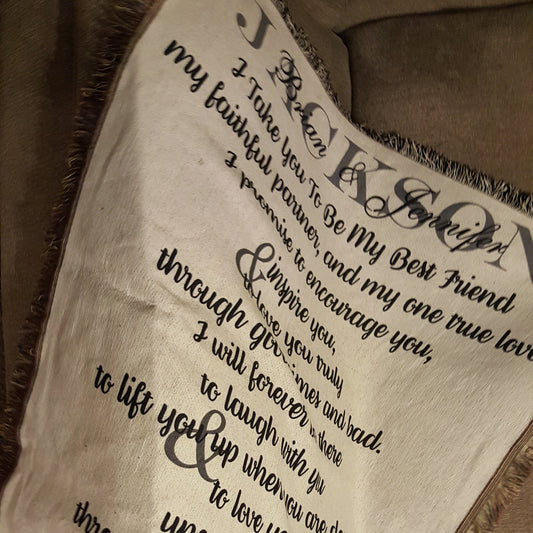 JACKSON
Brian & Jennifer
I Take You To Be My Best Friend
my faithful partner, and my one true love
I promise to encourage you,
& inspire you,
& love you truly
through good times and bad.
I will forever be there
to laugh with you
to lift you up when you are
& to love you